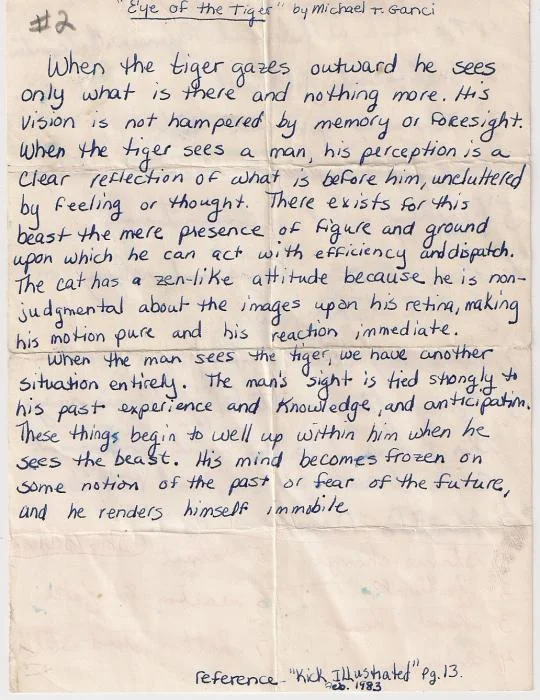 #2
"Eye of the Tiger" by Michael T. Ganci
When the tiger gazes outward he sees
only what is there and nothing more. His
vision is not hampered by memory or foresight.
When the tiger sees a man, his perception is a
clear reflection of what is before him, uncluttered
by feeling or thought. There exists for this
beast the mere presence of figure and ground
upon which he can act with efficiency and dispatch.
The cat has a zen-like attitude because he is non-
judgmental about the images upon his retina, making
his motion pure and his reaction immediate.
When the man sees the tiger, we have another
situation entirely. The man's sight is tied strongly to
his past experience and knowledge, and anticipation.
These things begin to well up within him when he
sees the beast. His mind becomes frozen on
some notion of the past or fear of the future,
and he renders himself immobile
reference - "Kick Illustrated" Pg. 13.
Feb. 1983